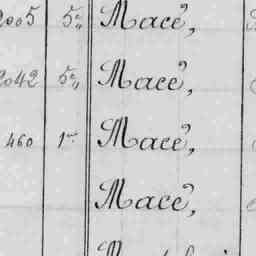 2005 5e Macé,
2042 5e Macé,
460 1er Macé,
Macé,